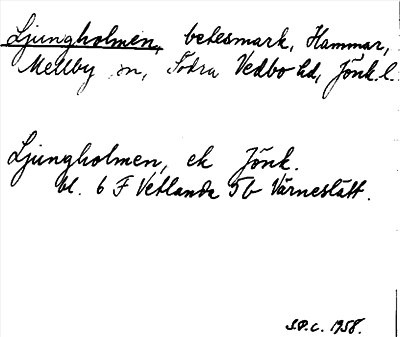 Ljungholmen, betesmark, Hammar,
Mellby sn, Södra Vedbo hd, Jönk. l.
Ljungholmen, ek Jönk.
bl. 6 F Vetlanda 5b Värneslätt.
S.P.C. 1958.